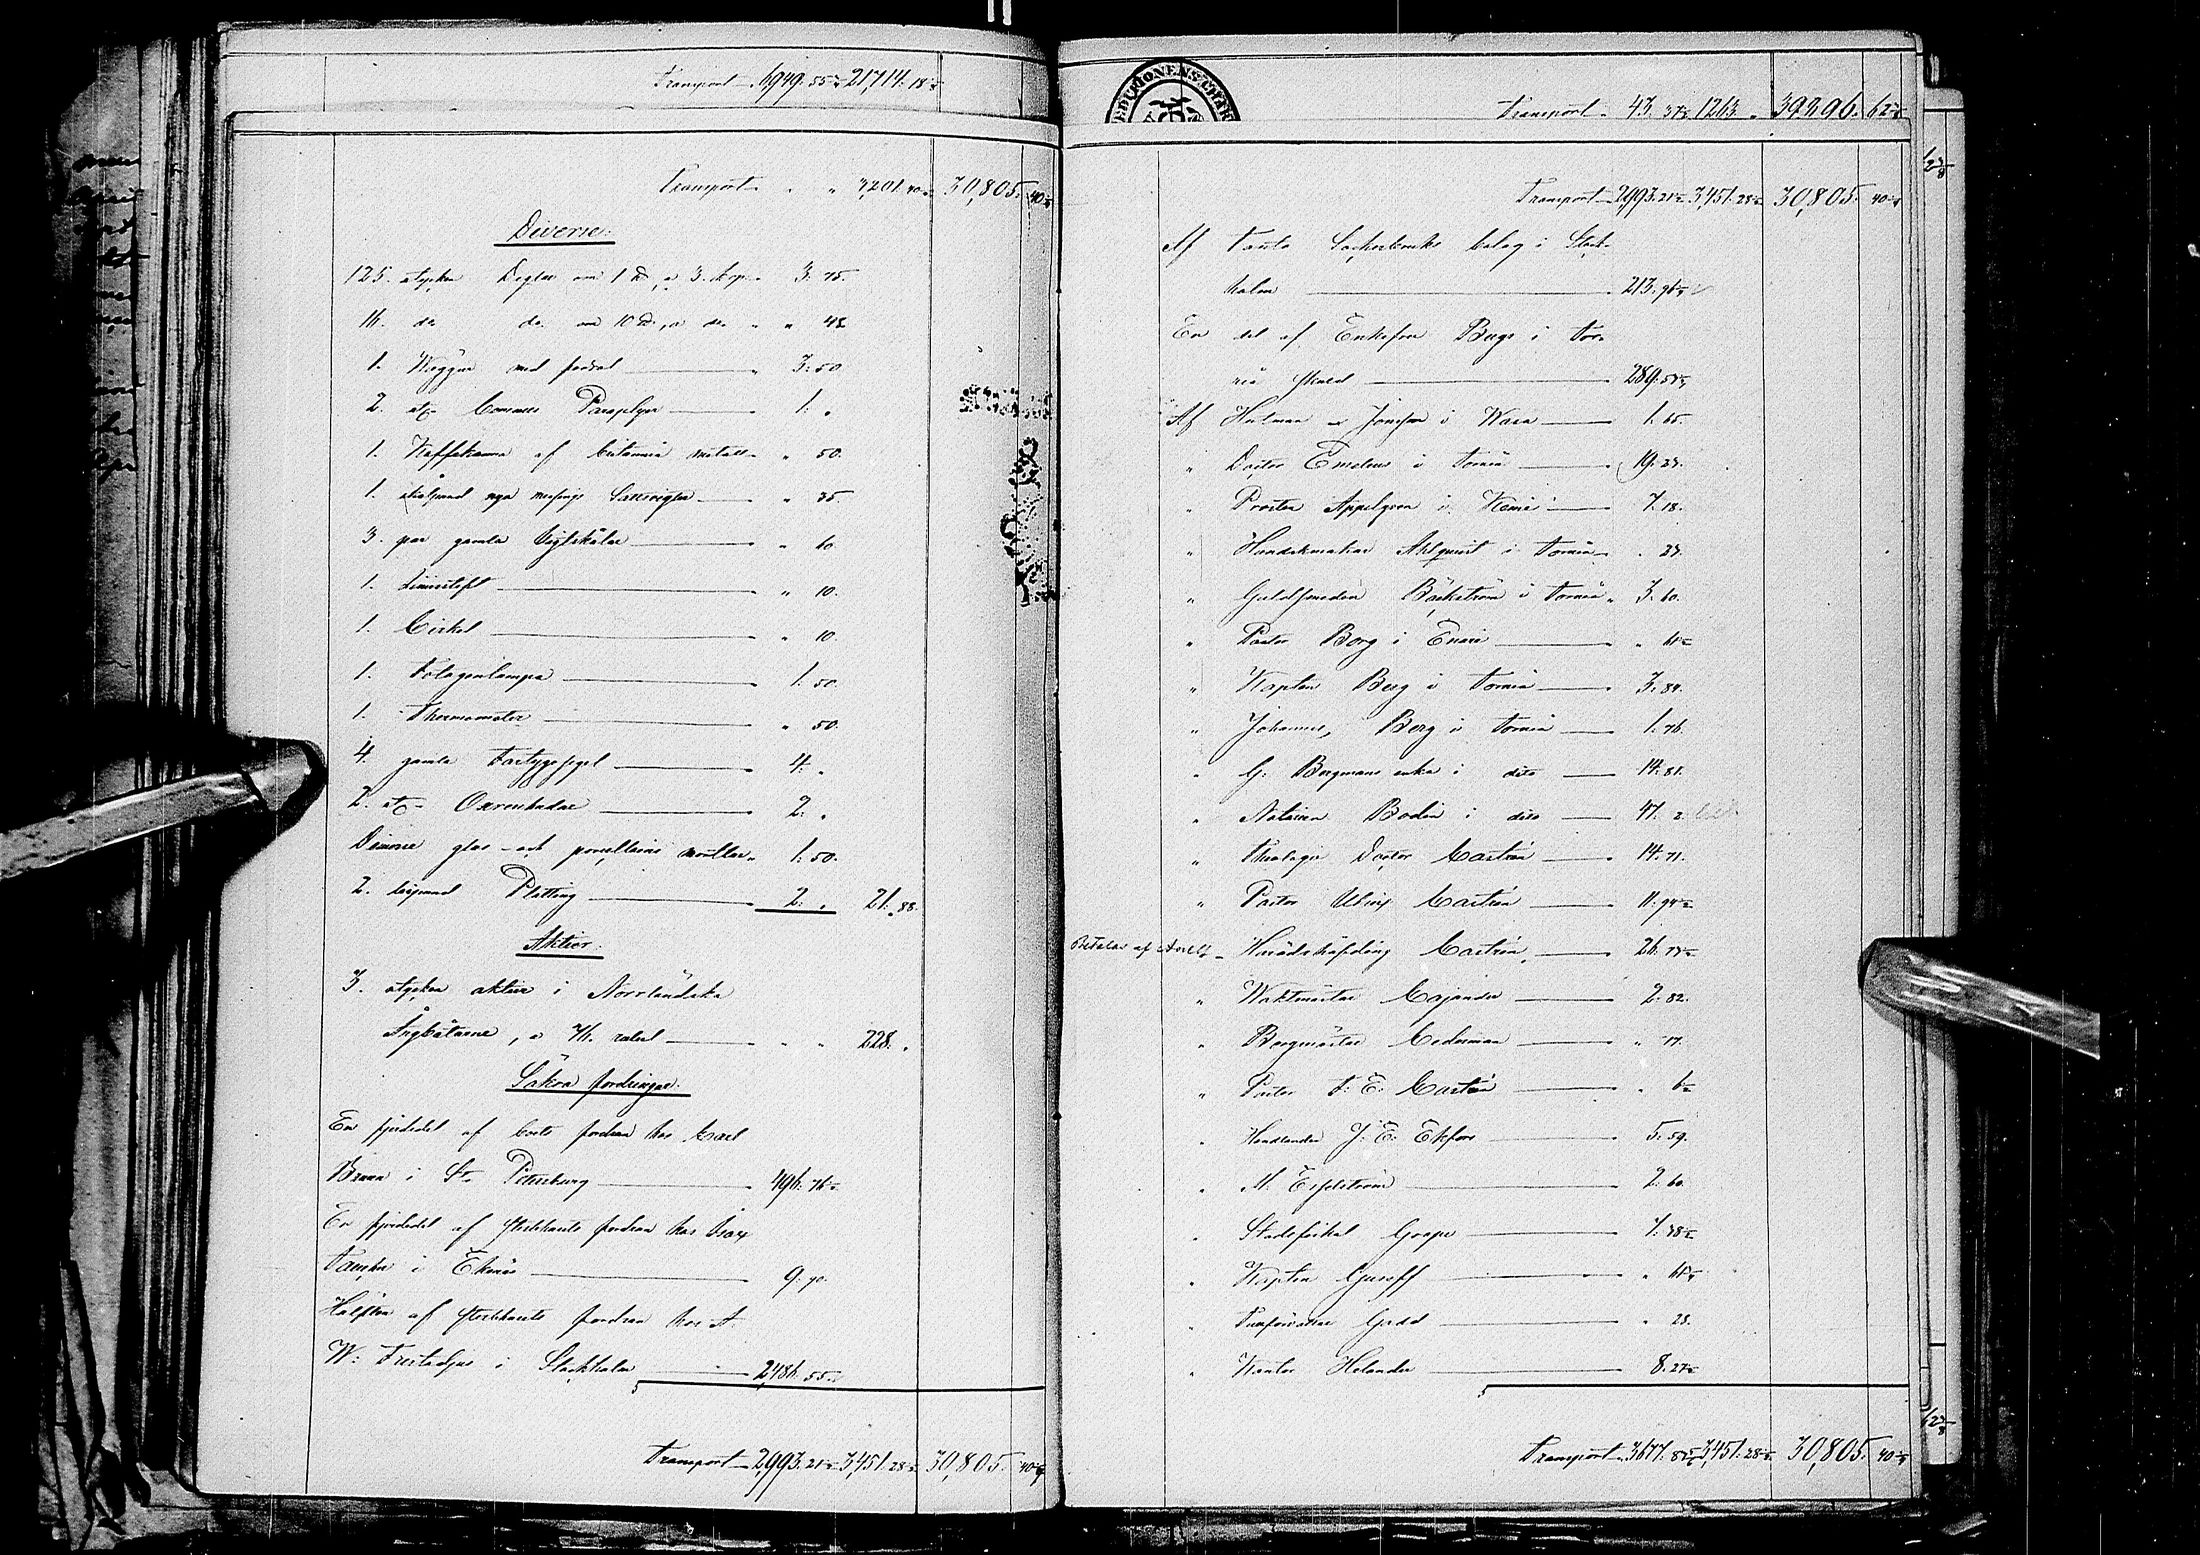 Transport 6949. 55 21,714. 18
Transport " " 3,201. 40 30,805. 40
Diverse:
125. stycken Deglar om 1 ℔, a 3. kop. 3. 75.
16. do do om 10 ℔, a do " " 48
1. Wäggur med fodral " 3. 50
2. st. Bommuls Paraplyer 1. "
1. Kaffekanna af britannia metall " 50.
1. skålpund nya messings " 35
3. par gamla Vigtskålar " 60
1. " 10.
1. Cirkel " 10.
1. Fotogenlampa 1. 50.
1. Thermometer " 50.
4. gamla Fartygssegel 4. "
2. st. Oxrenhudar 2. "
Diverse glas och porcellains 1. 50.
2. lispund Plätting 2. " 21. 88.
Aktier.
3. stycken aktier i Norrländska
Ångbåtarne, a 76. rubel " " 228. "
Säkra fordringar.
En fjerdedel af boets fordran hos Carl
Brunn i St. Petersburg 496. 76
En fjerdedel af sterbhusets fordran hos Isax
i Ekenäs 9. 90.
Hälften af sterbhusets fordran hos A.
W. Frestadius i Stockholm 2,486. 55
Transport 2,993. 21 3,451. 28 30,805. 40
EDUCTIONENS CHAR
Transport 43. 37 1263. " 39396. 62
Transport 2,993. 21 3,451. 28 30,805. 40
Af Tanto Sockerbruks bolag i Stock-
holm 213. 96
En del af Enkefru Bergs i Tor-
neå skuld 289. 57
Af Hultman & Jonsson i Wasa 1. 65.
" Doctor Emeleus i Torneå 19. 27.
" Prosten Appelgren i Kemi 7. 18.
" Handskmakar Ahlqvist i Torneå " 27.
" Guldsmeden Bäckström i Torneå 3. 60.
" Pastor Borg i Enare " 61
" Kapten Berg i Torneå 3. 84.
" Johannes Berg i Torneå 1. 76.
" G. Bergmans enka i dito 14. 81.
" Notarien Bodén i dito 47. 2
" Theologie Doctor Castrén 14. 71.
" Pastor Ulrix Castrén 11. 94
Betalas af Arell " Häradshöfding Castrén 26. 77
" Waktmästar Cajander 2. 82.
" Borgmästar Cederman " 17.
" Pastor F. E. Castrén " 6
" Handlanden J. E. Ekfors 5. 59.
" M. Espelström 2. 60.
" Stadsfiskal Grape 7. 38
" Kapten Gusseff " 61
" Gadd " 28.
" Kantor Helander 8. 27
Transport 3677. 82 3,451. 28 30,805. 40